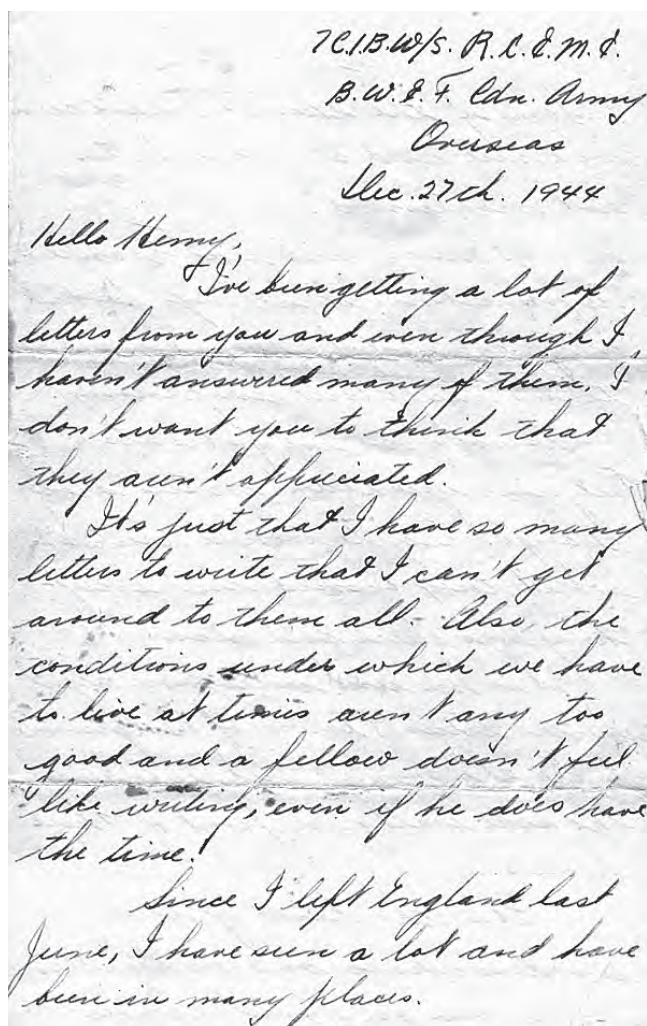 7 C.I.B. W/S. R.C.E.M.E.
B.W.E.F. Cdn. Army
Overseas
Dec. 27th. 1944
Hello Henry,
I've been getting a lot of
letters from you and even though I
haven't answered many of them, I
don't want you to think that
they aren't appreciated.
It's just that I have so many
letters to write that I can't get
around to them all. Also, the
conditions under which we have
to live at times aren't any too
good and a fellow doesn't feel
like writing, even if he does have
the time.
Since I left England last
June, I have seen a lot and have
been in many places.